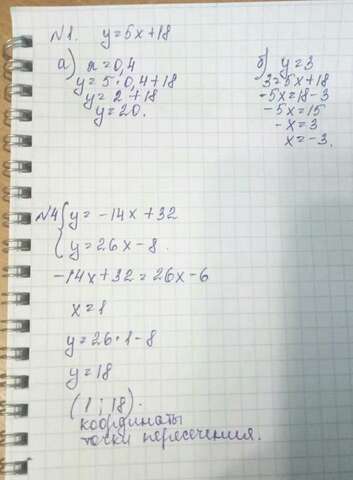 №1. y=5x+18
а) x=0,4
y=5·0,4+18
y=2+18
y=20.
б) y=3
-3=5x+18
-5x=18-3
-5x=15
-x=3
x=-3.
№4 { y=-14x+32
y=26x-8.
-14x+32=26x-6
x=1
y=26·1-8
y=18
(1; 18).
координаты
точки пересечения.